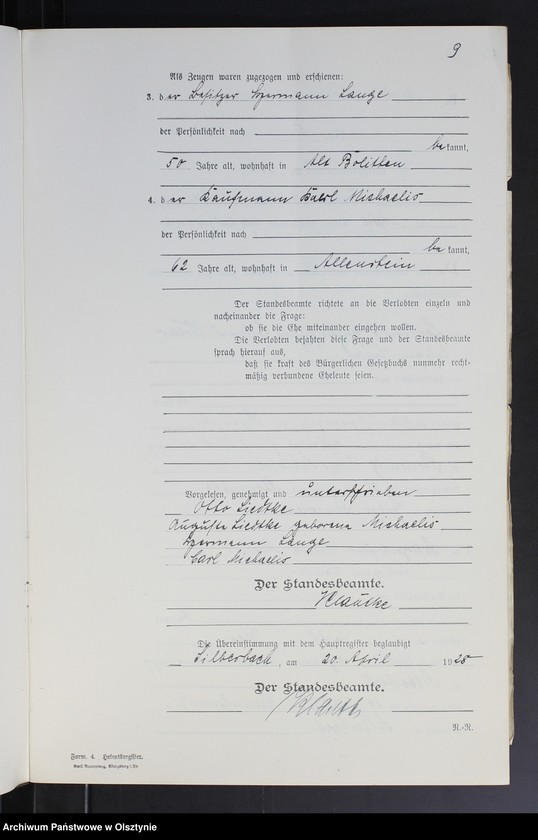 9
Als Zeugen waren zugezogen und erschienen:
3. der Besitzer Hermann Lange
der Persönlichkeit nach
bekannt,
50 Jahre alt, wohnhaft in Alt Bolitten
4. der Kaufmann Karl Michaelis
der Persönlichkeit nach
bekannt,
62 Jahre alt, wohnhaft in Allenstein
Der Standesbeamte richtete an die Verlobten einzeln und
nacheinander die Frage:
ob sie die Ehe miteinander eingehen wollen.
Die Verlobten bejahten diese Frage und der Standesbeamte
sprach hierauf aus,
daß sie kraft des Bürgerlichen Gesetzbuchs nunmehr recht-
mäßig verbundene Eheleute seien.
Vorgelesen, genehmigt und unterschrieben
Otto Liedtke
Auguste Liedtke geborene Michaelis
Hermann Lange
Carl Michaelis
Der Standesbeamte.
Die Übereinstimmung mit dem Hauptregister beglaubigt
Silberbach, am 20. April 1928
Der Standesbeamte.
N.-R.
Form. 4. Heiratsregister.
Archiwum Państwowe w Olsztynie